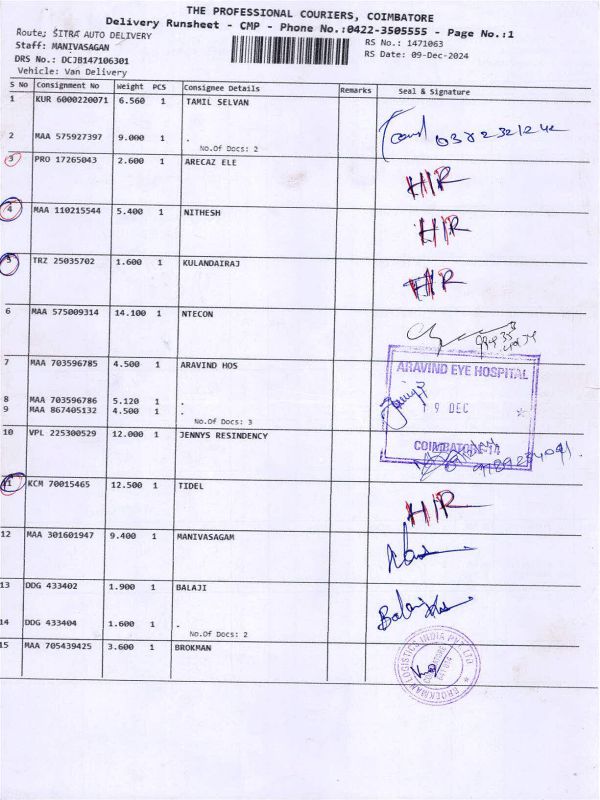 THE PROFESSIONAL COURIERS, COIMBATORE
Delivery Runsheet - CMP - Phone No.:0422-3505555 - Page No.:1
Route; SITRA AUTO DELIVERY
Staff: MANIVASAGAN
RS No.: 1471063
DRS No.: DCJB147106301
RS Date: 09-Dec-2024
Vehicle: Van Delivery
S No Consignment No Weight PCS Consignee Details Remarks Seal & Signature
1 KUR 6000220071 6.560 1 TAMIL SELVAN
2 MAA 575927397 9.000 1 .
No.Of Docs: 2
3 PRO 17265043 2.600 1 ARECAZ ELE H/R
4 MAA 110215544 5.400 1 NITHESH H/R
5 TRZ 25035702 1.600 1 KULANDAIRAJ H/R
6 MAA 575009314 14.100 1 NTECON
7 MAA 703596785 4.500 1 ARAVIND HOS
ARAVIND EYE HOSPITAL
8 MAA 703596786 5.120 1 .
9 MAA 867405132 4.500 1 .
9 DEC
No.Of Docs: 3
10 VPL 225300529 12.000 1 JENNYS RESINDENCY
COIMBATORE-14
11 KCM 70015465 12.500 1 TIDEL H/R
12 MAA 301601947 9.400 1 MANIVASAGAM
13 DDG 433402 1.900 1 BALAJI
14 DDG 433404 1.600 1 .
No.Of Docs: 2
15 MAA 705439425 3.600 1 BROKMAN
BROEKMAN LOGISTICS INDIA PVT LTD